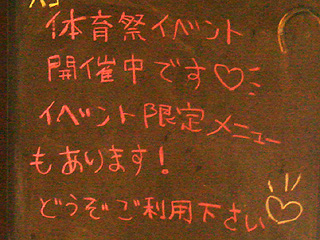 体育祭イベント
開催中です♡
イベント限定メニュー
もあります！
どうぞご利用下さい♡